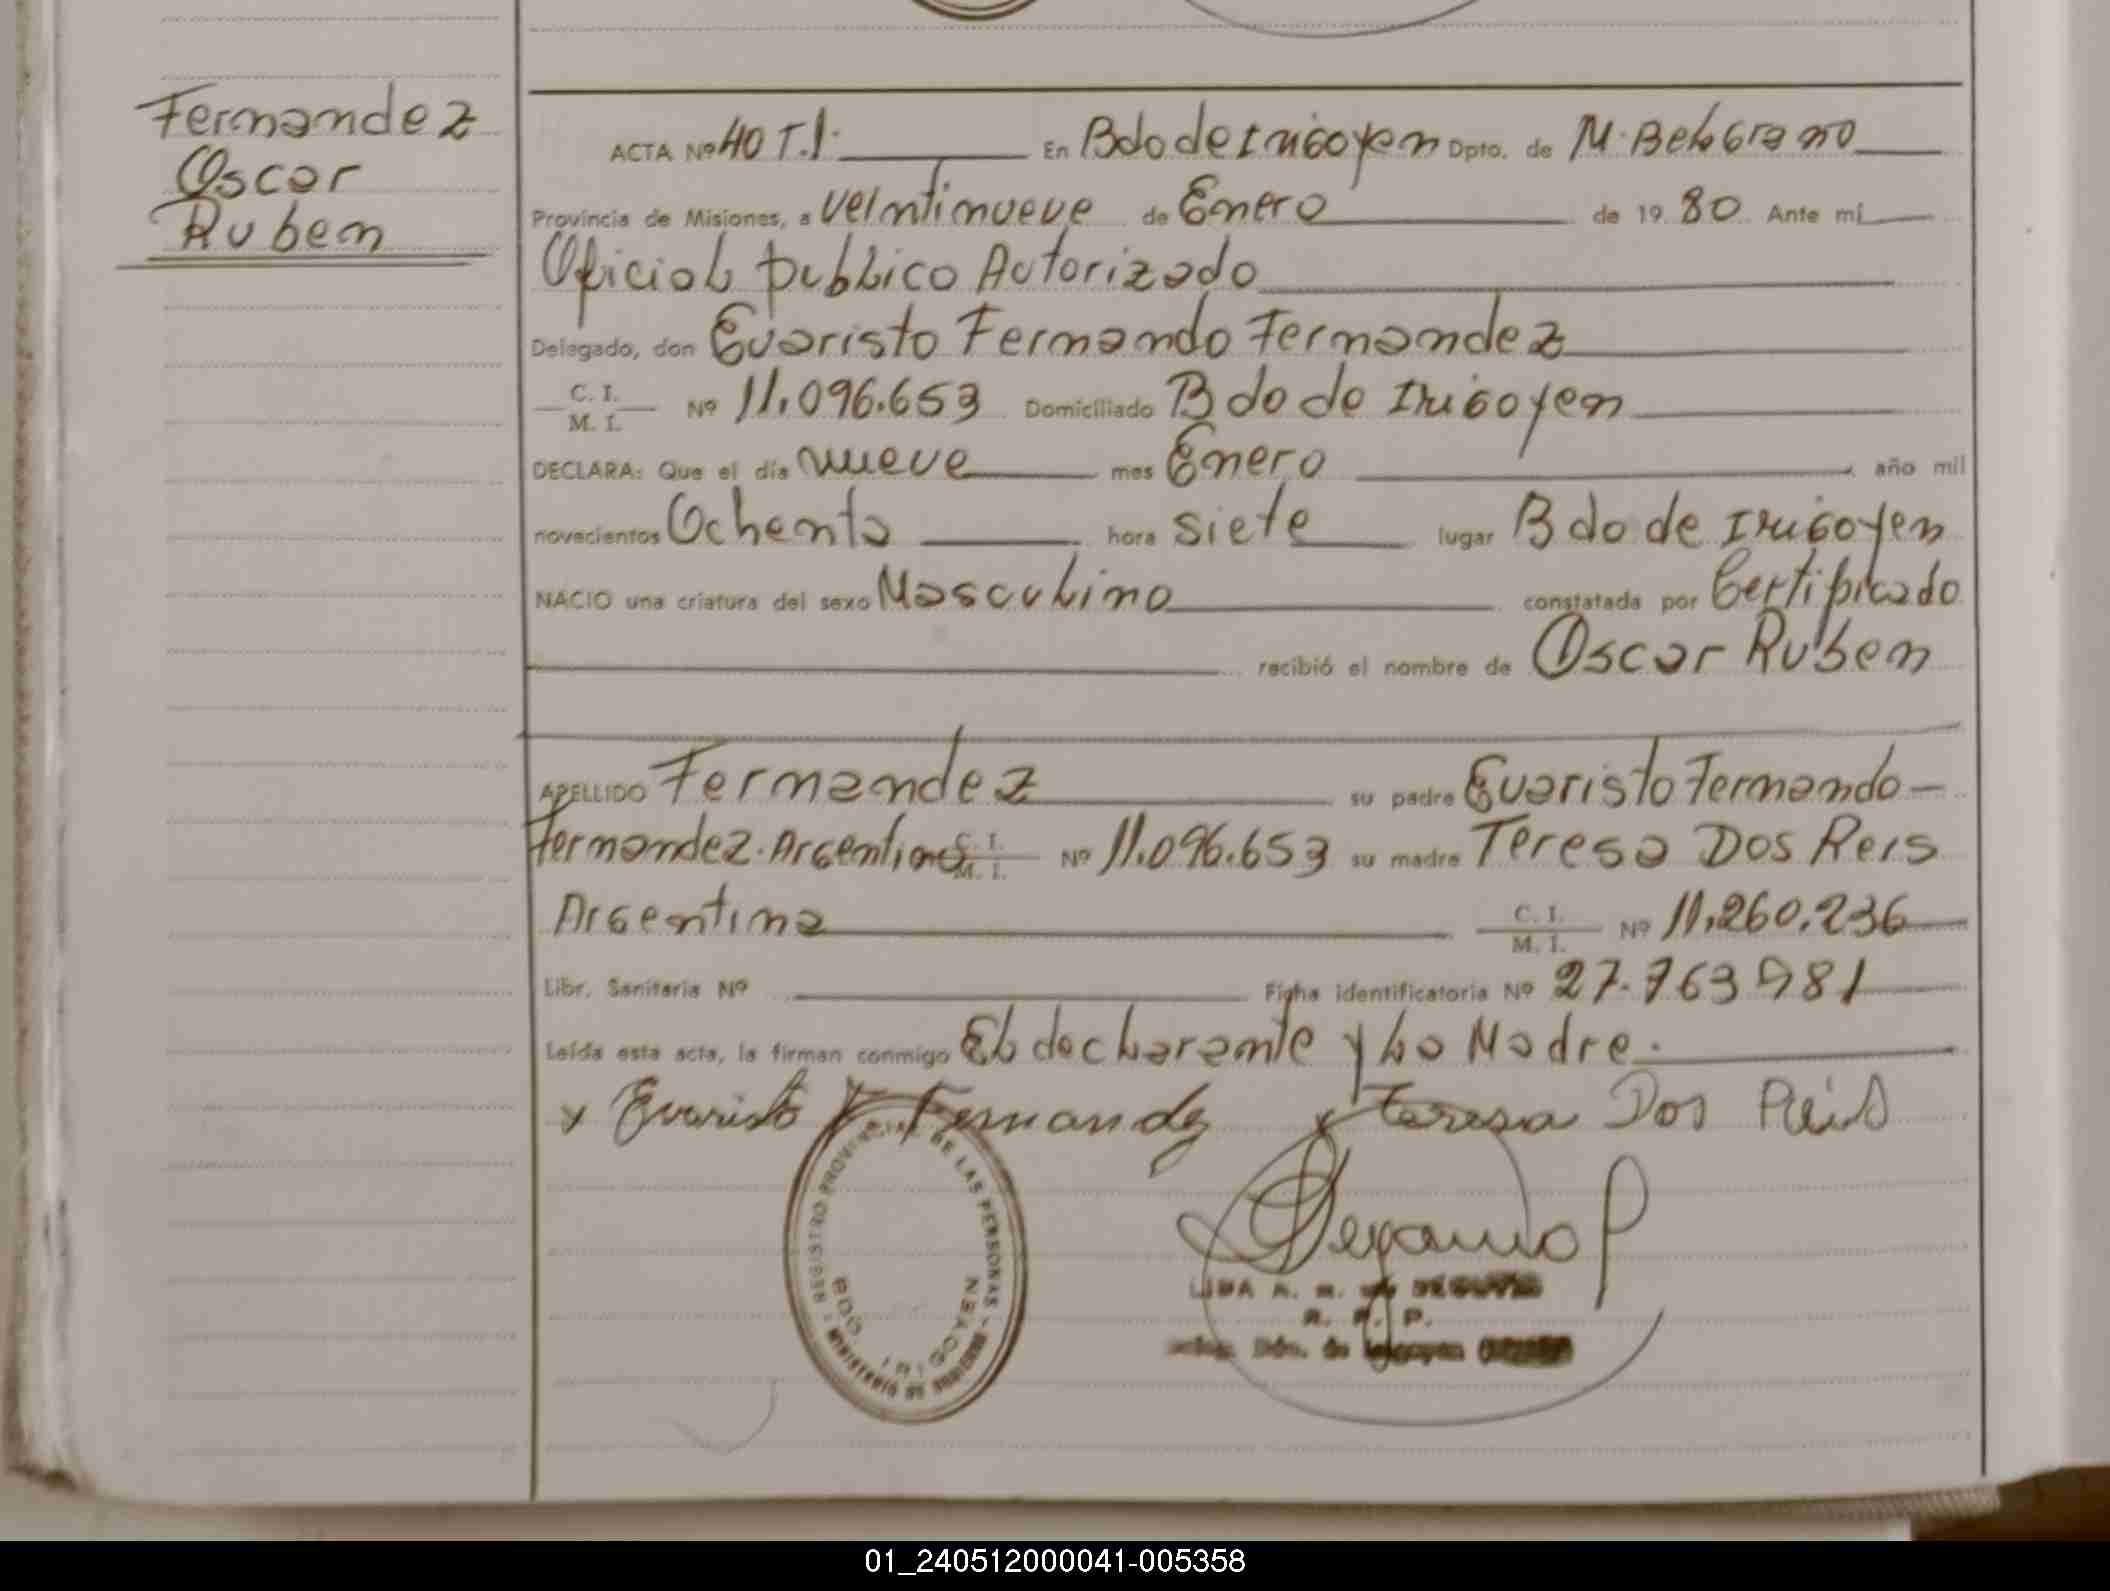 Fernandez
Oscar
Ruben
ACTA Nº 40 T.I. En Bdo de Irigoyen Dpto. de M. Belgrano
Provincia de Misiones, a veintinueve de Enero de 19 80 Ante mí
Oficial publico Autorizado
Delegado, don Evaristo Fernando Fernandez
C. I.
M. I. Nº 11.096.653 Domiciliado Bdo de Irigoyen
DECLARA: Que el día nueve mes Enero año mil
novecientos Ochenta hora siete lugar Bdo de Irigoyen
NACIO una criatura del sexo Masculino constatada por Certificado
recibió el nombre de Oscar Ruben
APELLIDO Fernandez su padre Evaristo Fernando
Fernandez. Argentino C. I. M. I. Nº 11.096.653 su madre Teresa Dos Reis
Argentina C. I. M. I. Nº 11.260.236
Libr. Sanitaria Nº Ficha identificatoria Nº 27.763981
Leída esta acta, la firman conmigo El declarante y La Madre.
x Evaristo F Fernandez x Teresa Dos Reis
REGISTRO PROVINCIAL DE LAS PERSONAS - MINISTERIO DE
BDO. IRIGOYEN
LIDA A. M. de
R. P. P.
01_240512000041-005358